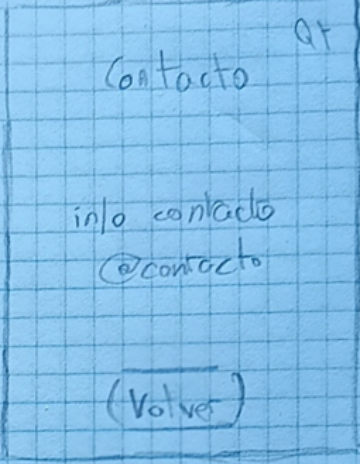 Q+
Contacto
info contacto
@contacto
(Volver)